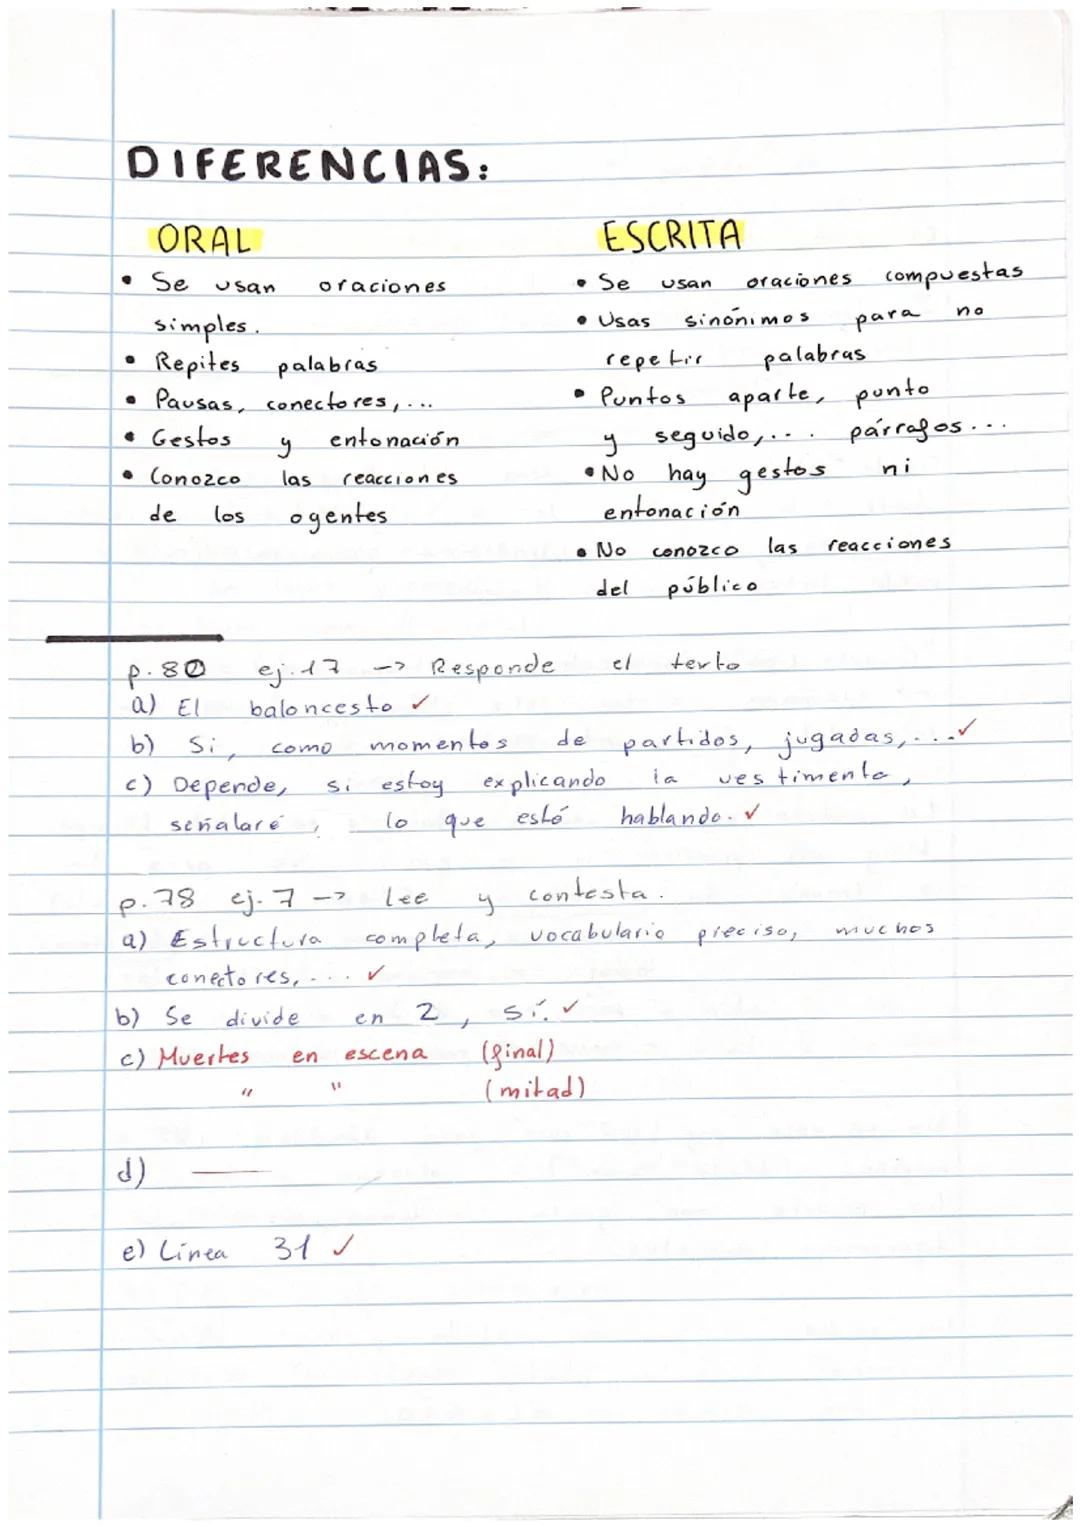 DIFERENCIAS:
ORAL
• Se usan oraciones
simples.
• Repites palabras
• Pausas, conectores,...
• Gestos y entonación
• Conozco las reacciones
de los ogentes
ESCRITA
• Se usan oraciones compuestas
• Usas sinónimos para no
repetir palabras
• Puntos aparte, punto
y seguido,... párrafos...
• No hay gestos ni
entonación
• No conozco las reacciones
del público
p.80 ej.17 -> Responde el texto
a) El baloncesto ✓
b) Si, como momentos de partidos, jugadas,... ✓
c) Depende, si estoy explicando la vestimenta,
señalaré, lo que esté hablando. ✓
p.78 ej.7 -> lee y contesta.
a) Estructura completa, vocabulario preciso, muchos
conectores,... ✓
b) Se divide en 2, Sí. ✓
c) Muertes en escena (final)
" " (mitad)
d) —
e) Línea 31 ✓